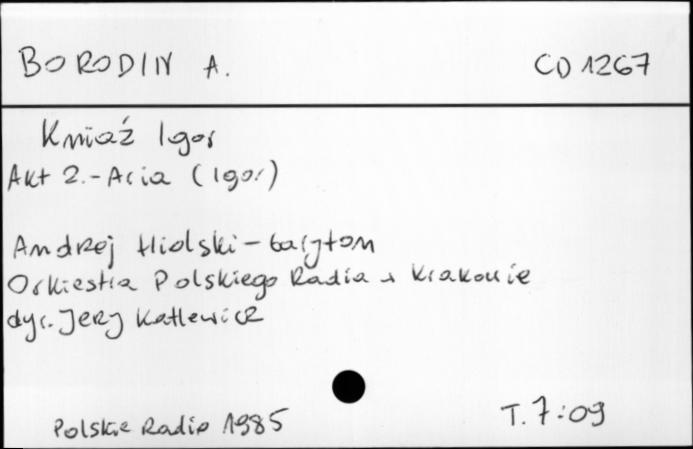 BORODIN A. CD 1267
Kniaź Igor
Akt 2.- Aria (Igor)
Andrzej Hiolski - baryton
Orkiestra Polskiego Radia w Krakowie
dyr. Jerzy Katlewicz
Polskie Radio 1985 T. 7:09